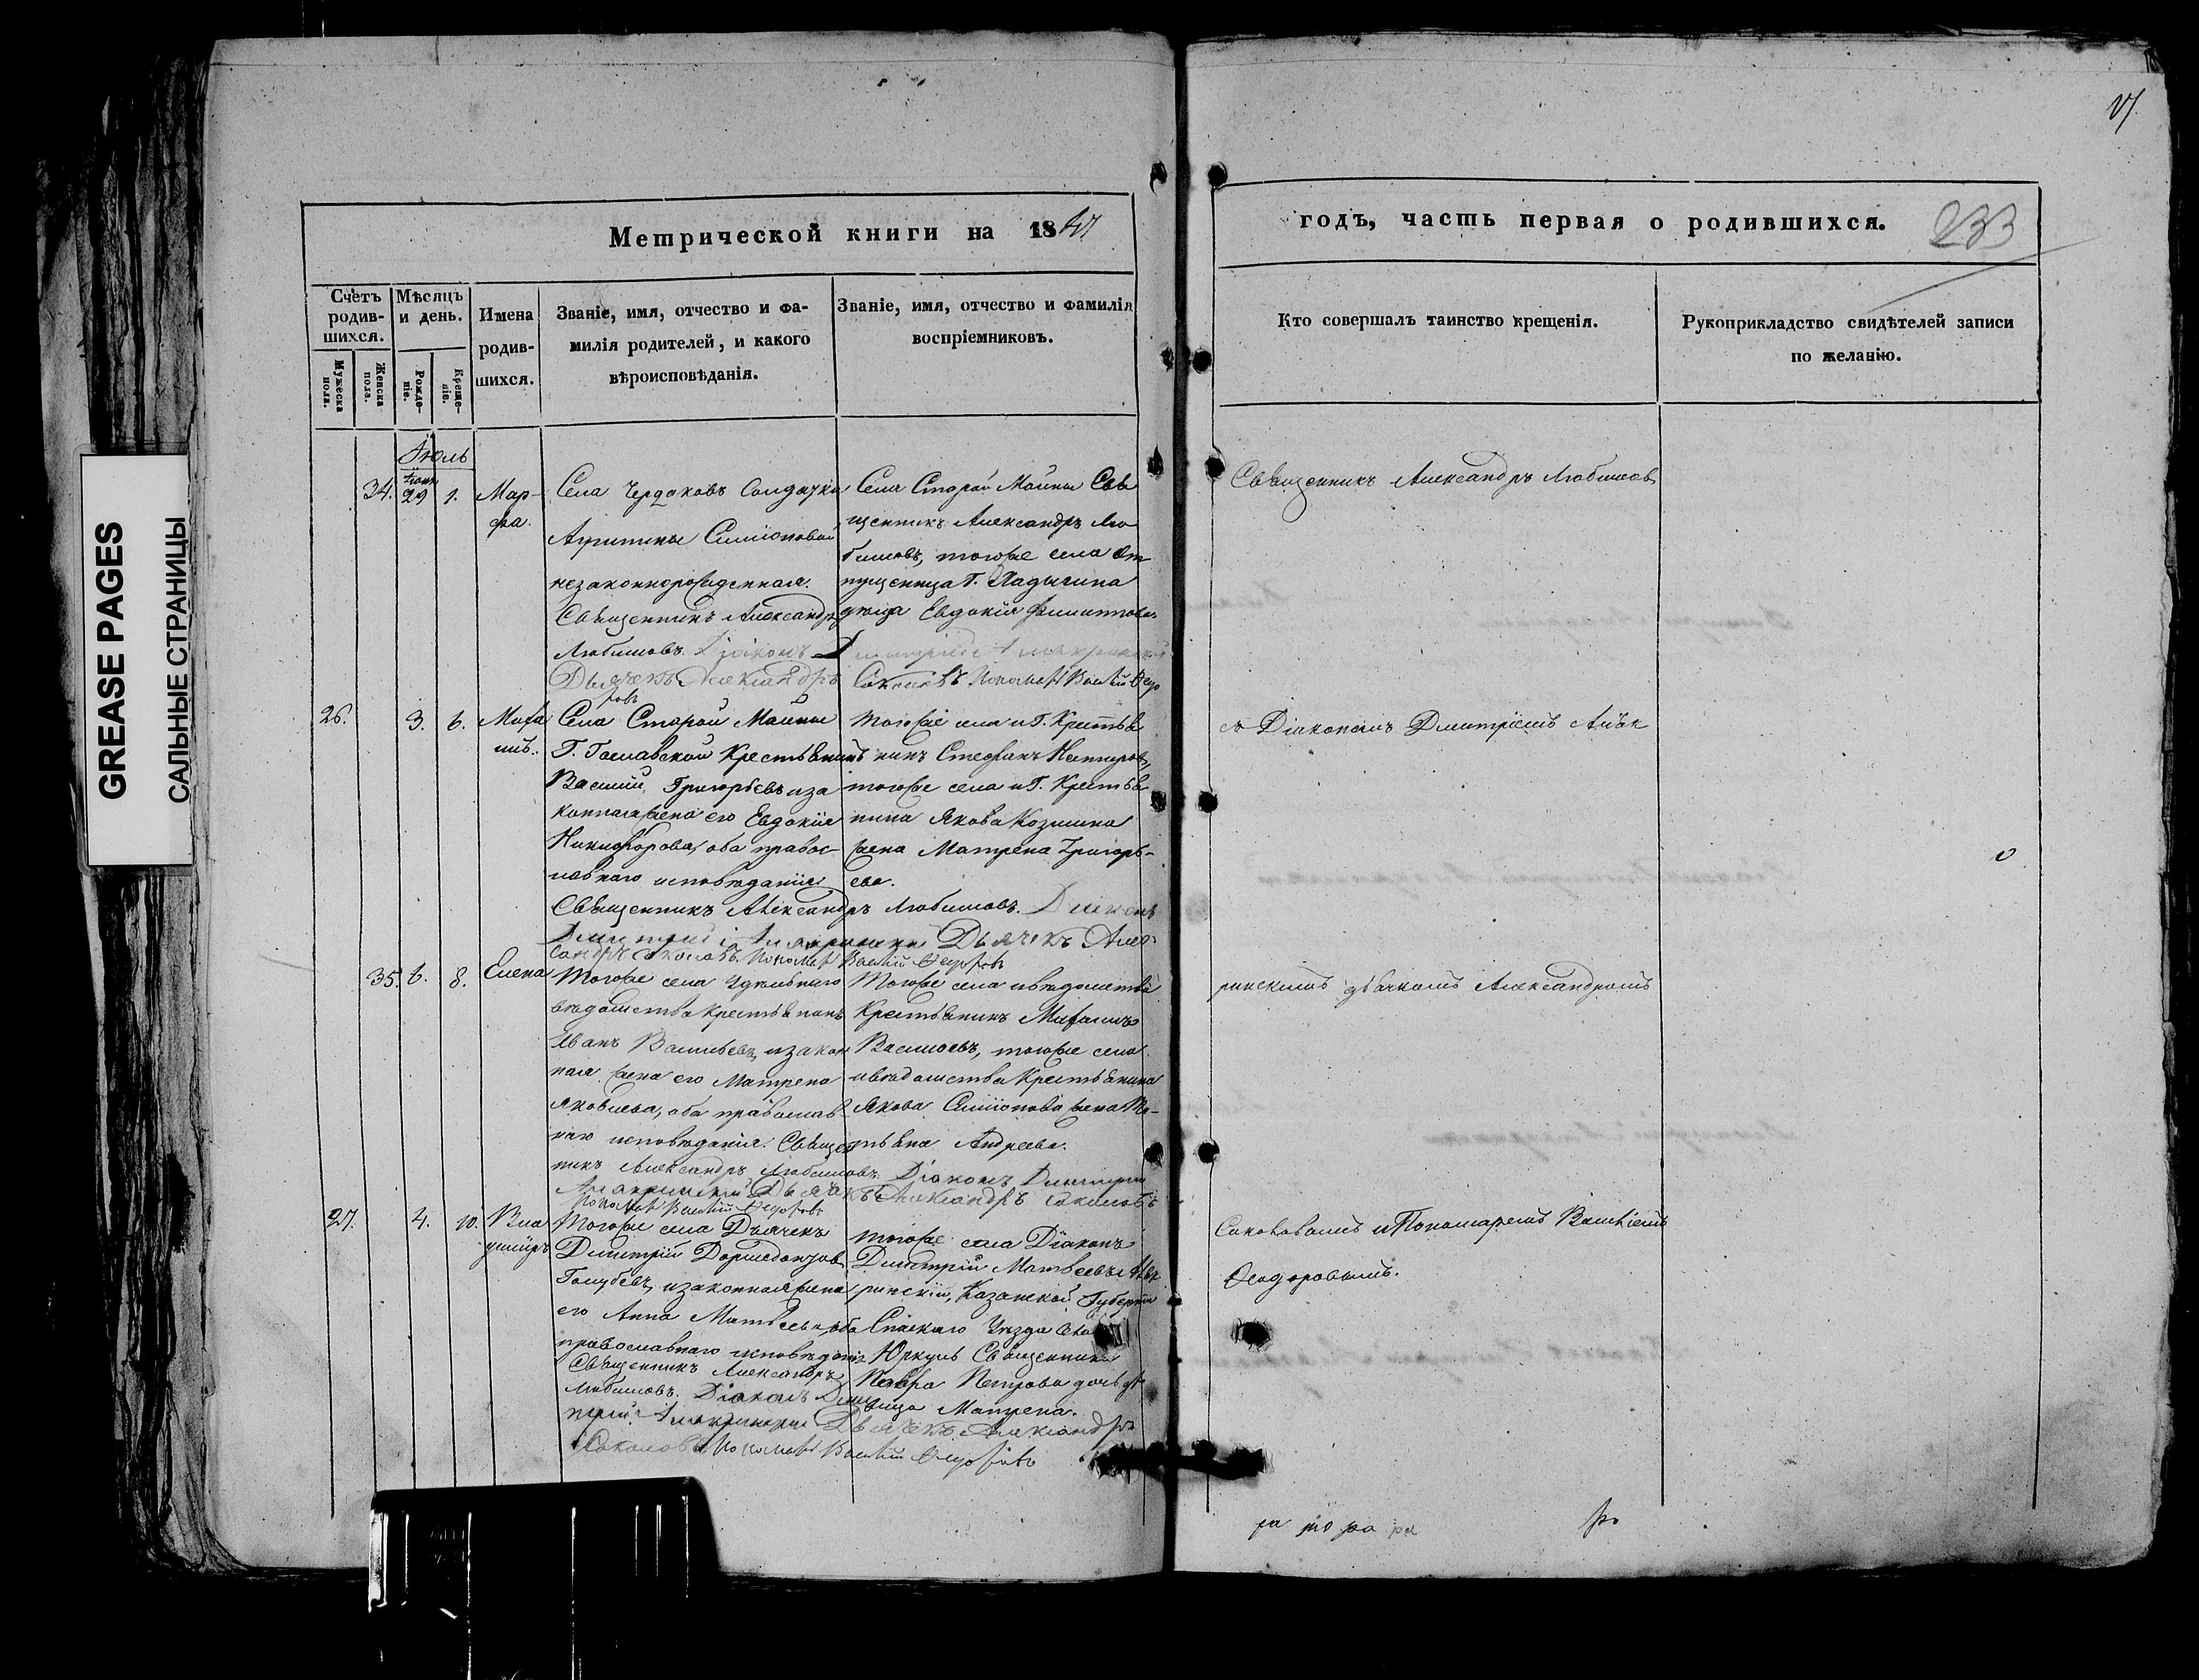 GREASE PAGES
САЛЬНЫЕ СТРАНИЦЫ
Метрической книги на 1847
годъ, часть первая о родившихся.
233
Счетъ родив-шихся.
Мужеска пола.
Женска пола.
Мѣсяцъ и день.
Рожде-ніе.
Креще-ніе.
Имена родив-шихся.
Званіе, имя, отчество и фа-
милія родителей, и какого
вѣроисповѣданія.
Званіе, имя, отчество и фамилія
воспріемниковъ.
Кто совершалъ таинство крещенія.
Рукоприкладство свидѣтелей записи
по желанію.
Іюль
34. Іюня 29 1. Мар-
фа.
Села Чердаковъ Солдатки
Симіоновой
незаконнорожденная.
Священникъ Александръ
Любимовъ. Діаконъ
Дьячекъ Александръ
Села Старой Майны Свя
щенникъ Александръ Лю
бимовъ, тогоже села От
пущеница Г. Ладыгина
дѣвица Евдокія
Соколовъ Пономарь Василій Ѳедо
ровъ
Священникъ Александръ Любимовъ
26. 3. 6. Миха
илъ.
Села Старой Майны
Г. Крестьянинъ
Василій Григорьевъ и за
конная жена его Евдокія
Никифорова, оба правос-
лавнаго исповѣданія
Священникъ Александръ Любимовъ. Діаконъ
Дмитрій Дьячекъ Алек
сандръ Соколовъ Пономарь Василій Ѳедоровъ
тогоже села и Г. Крестья
нинъ Стефанъ
тогоже села и Г. Крестья
нина Якова Козмина
жена Матрена Григорь-
ева.
съ Діакономъ Дмитріемъ
35. 6. 8. Елена
Тогоже села Удѣльнаго
вѣдомства Крестьянинъ
Иванъ Васильевъ, и закон
ная жена его Матрена
Яковлева, оба православ
наго исповѣданія. Священ
никъ Александръ Любимовъ. Діаконъ Дмитрій
Дьячекъ Александръ Соколовъ
Пономарь Василій Ѳедоровъ
Тогоже села и вѣдомства
Крестьянинъ Михаилъ
Васильевъ, тогоже села
и вѣдомства Крестьянина
Якова Симіонова жена Та-
тьяна Андреева.
ринскимъ дьячкомъ Александромъ
27. 4. 10. Вла
диміръ
Тогоже села Дьячекъ
Дмитрій
Голубевъ, и законная жена
его Анна Матвеева, оба
православнаго исповѣданія
Священникъ Александръ
Любимовъ. Діаконъ Дми
трій Дьячекъ Александръ
Соколовъ Пономарь Василій Ѳедоровъ
тогоже села Діаконъ
Дмитрій Матвеевъ
ринскій, Казанской Губерніи
Спаскаго Уѣзда Села
Юркуль Священника
Петрова дочь дѣ
вица Матрена.
Соколовымъ и Пономаремъ Василіемъ
Ѳеодоровымъ.
ра ро ра ра